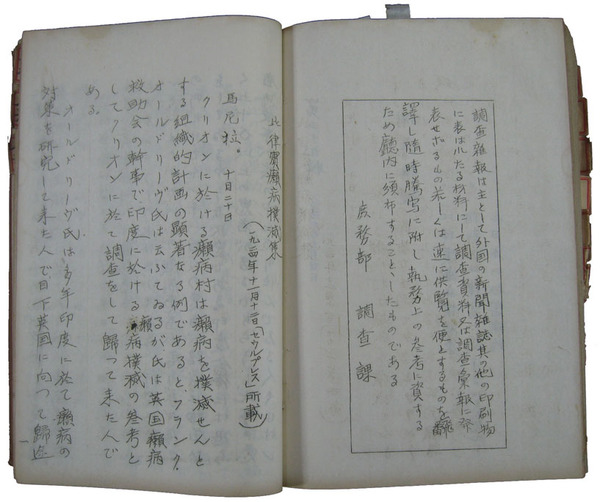 調査雑報は主として外国の新聞雑誌其の他の印刷物
に表はれたる材料にて調査資料又は調査彙報に発
表せざるもの若しくは速に供覧を便とするものを飜
譯し隨時謄写に附し執務上の参考に資する
ため廳内に須布することゝしたものである
庶務部 調査課
比律賓癩病撲滅策
(一九二四年十一月十二日「セウルプレス」所載)
馬尼拉。 十月二十日
クリオンに於ける癩病村は癩病を撲滅せんと
する組織的計画の顕著なる例であるとフランク、
オールドリーヴ氏は云ふてゐるが氏は英国癩病
救助会の幹事で印度に於ける癩病撲滅の参考と
してクリオンに於て調査をして歸つて来た人で
ある。
オールドリーヴ氏は多年印度に於て癩病の
対策を研究して来た人で目下英国に向つて歸途
一